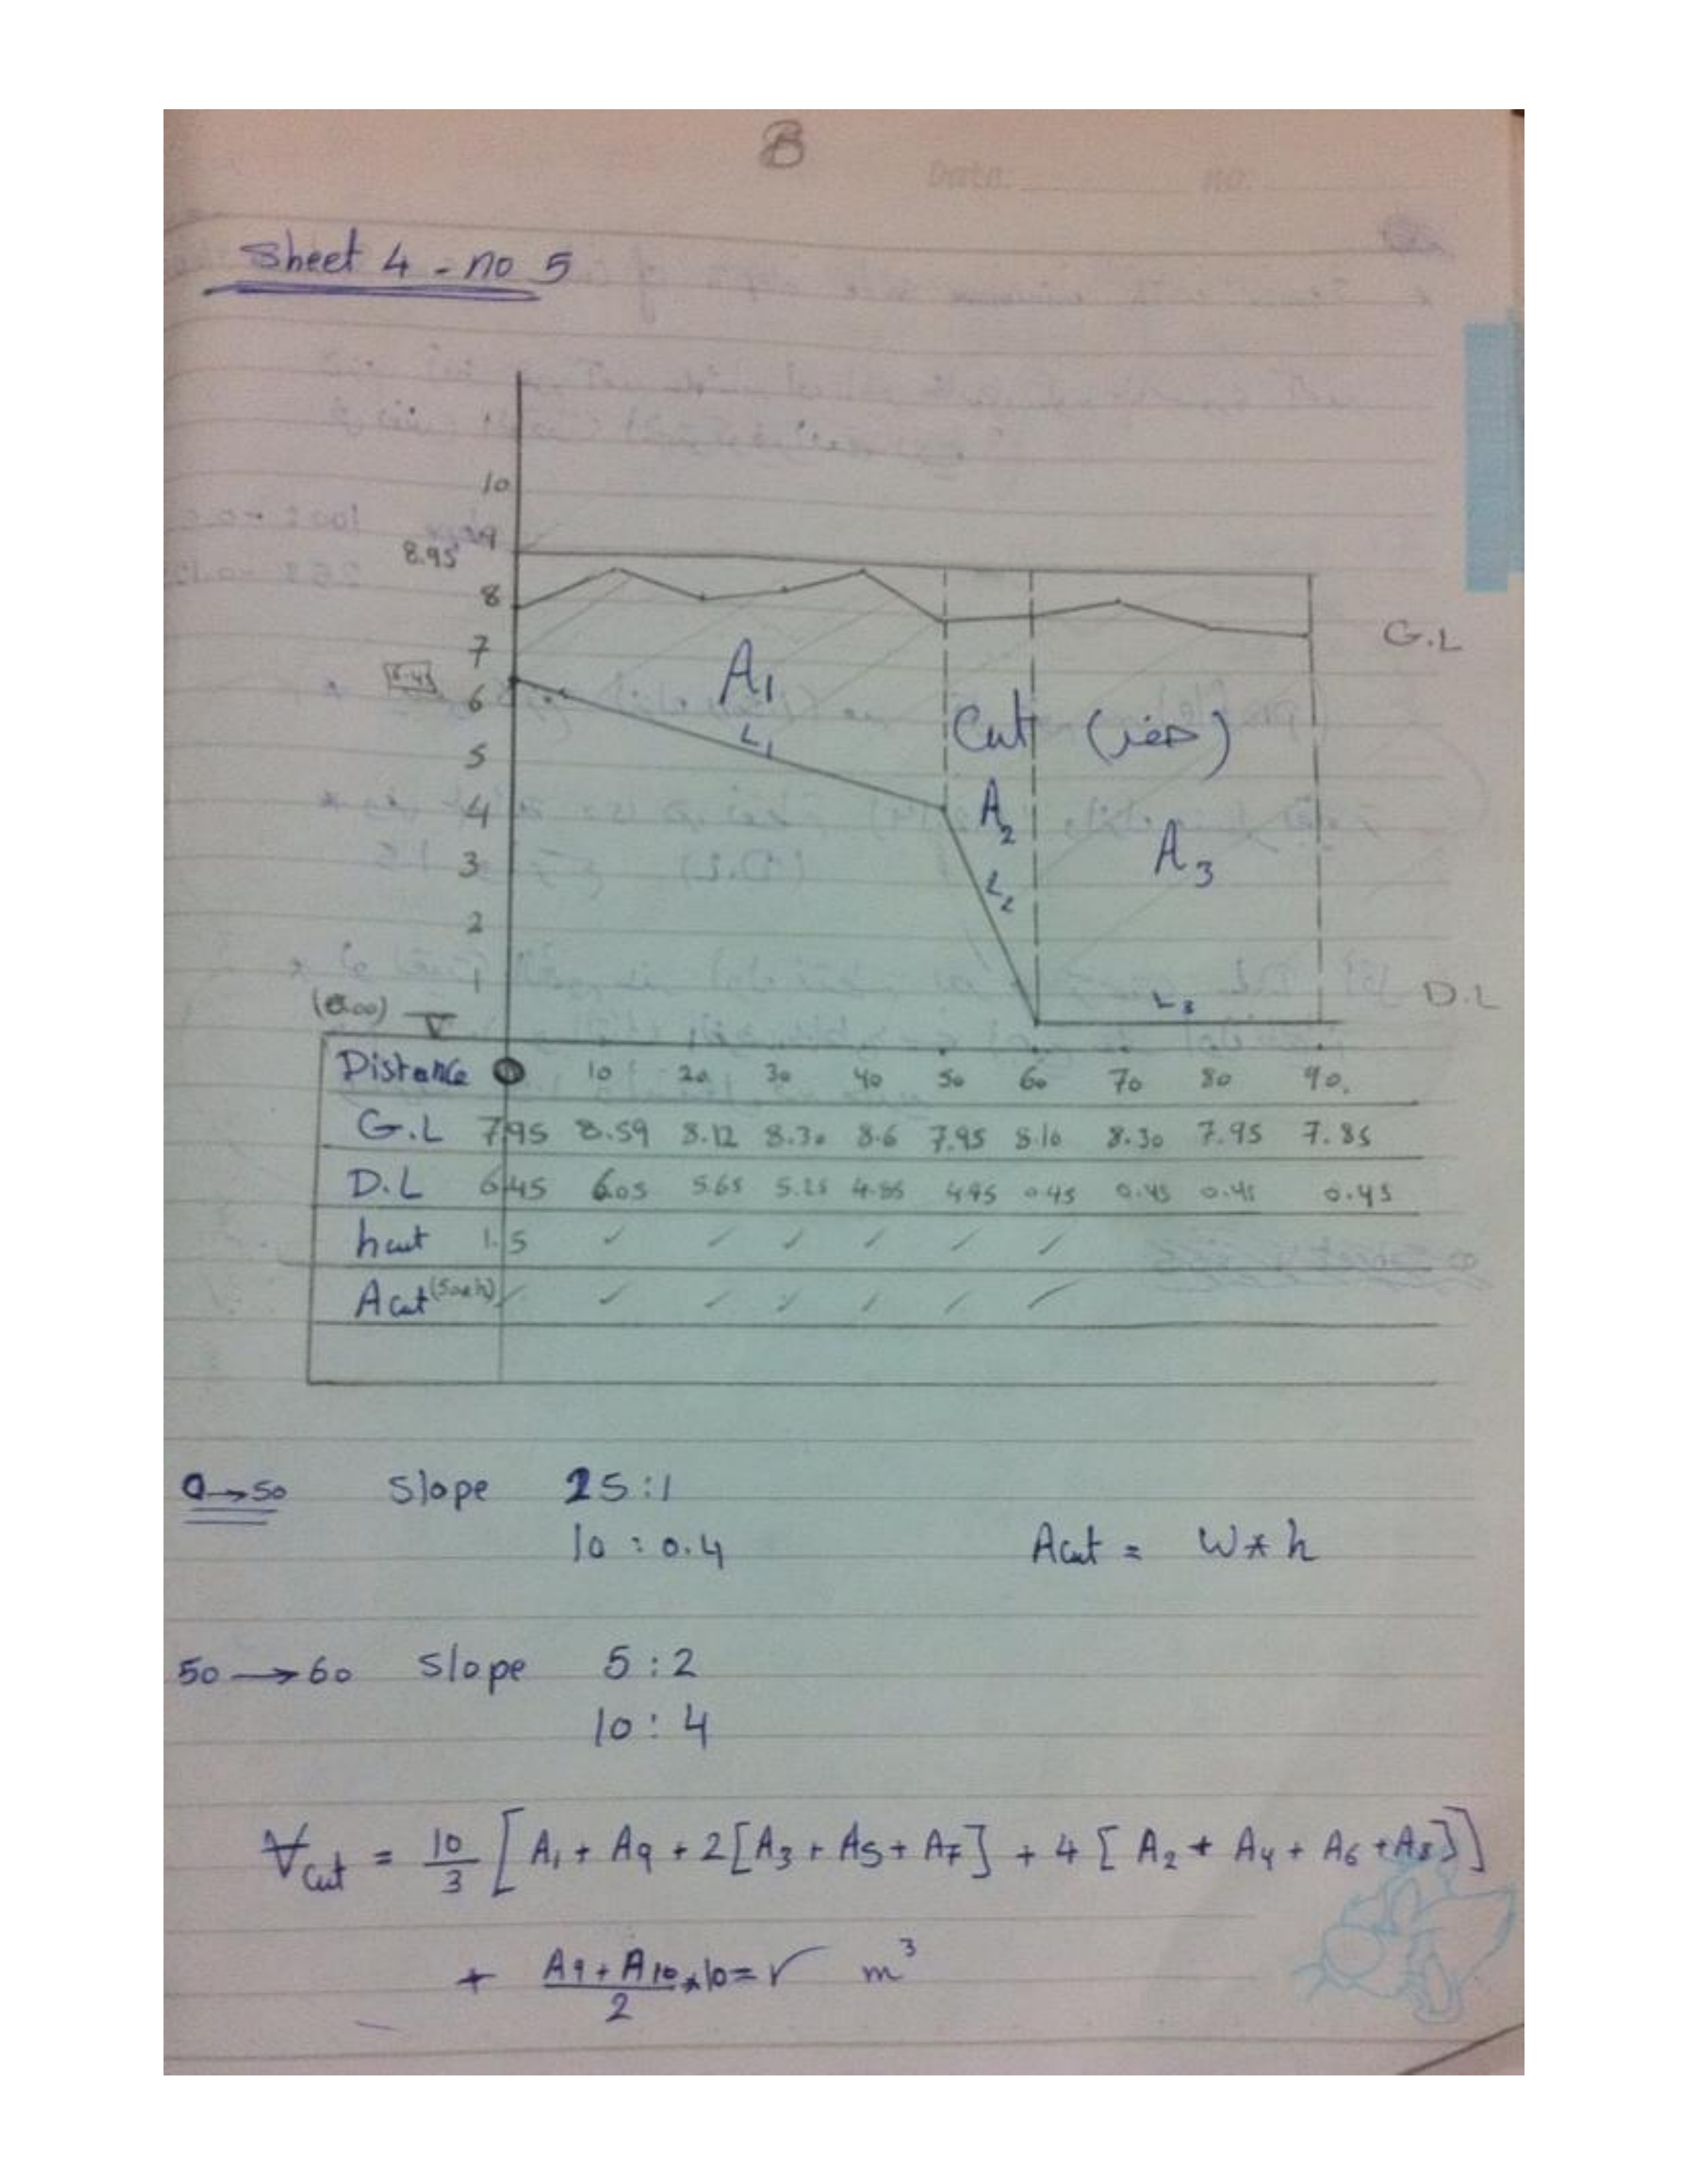 B
Date: no.
Sheet 4 - no 5
10
9
8.95
8
7
G.L
6.45
6
A1
L1
Cut (حفر)
5
4
A2
3
A3
L2
2
1
L3
D.L
(0.00)
Distance 0 10 20 30 40 50 60 70 80 90.
G.L 7.95 8.59 8.12 8.30 8.6 7.95 8.10 8.30 7.95 7.85
D.L 6.45 6.05 5.65 5.25 4.85 4.45 0.45 0.45 0.45 0.45
hcut 1.5 ✓ ✓ ✓ ✓ ✓ ✓
Acut ✓ ✓ ✓ ✓ ✓ ✓ ✓
0→50 Slope 25:1
10 : 0.4 Acut = W * h
50 → 60 Slope 5:2
10 : 4
Vcut = 10/3 [A1 + A9 + 2[A3 + A5 + A7] + 4 [A2 + A4 + A6 + A8]]
+ (A9 + A10)/2 * 10 = ✓ m³